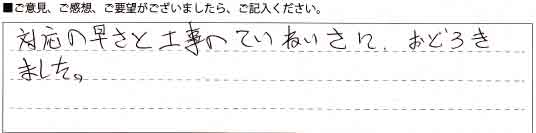 ■ご意見、ご感想、ご要望がございましたら、ご記入ください。
対応の早さと工事のていねいさに、おどろき
ました。